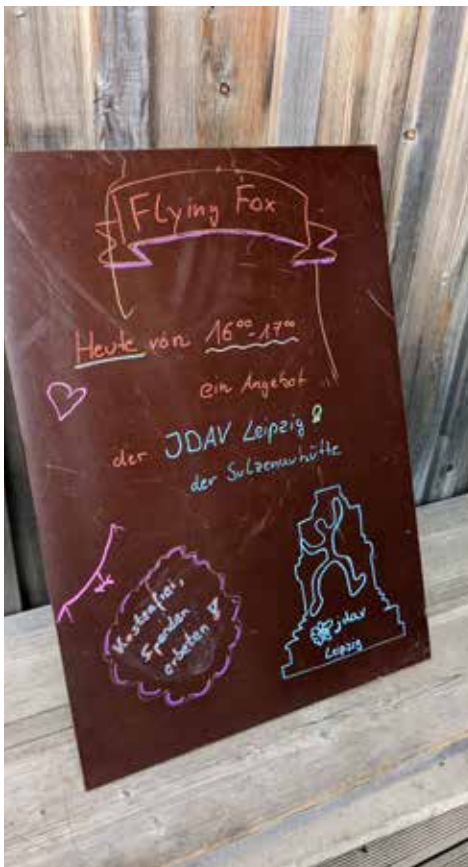 Flying Fox
Heute von 16⁰⁰-17⁰⁰
ein Angebot
der JDAV Leipzig &
der Sulzenauhütte
Kostenfrei,
Spenden
erbeten!
jdav
Leipzig